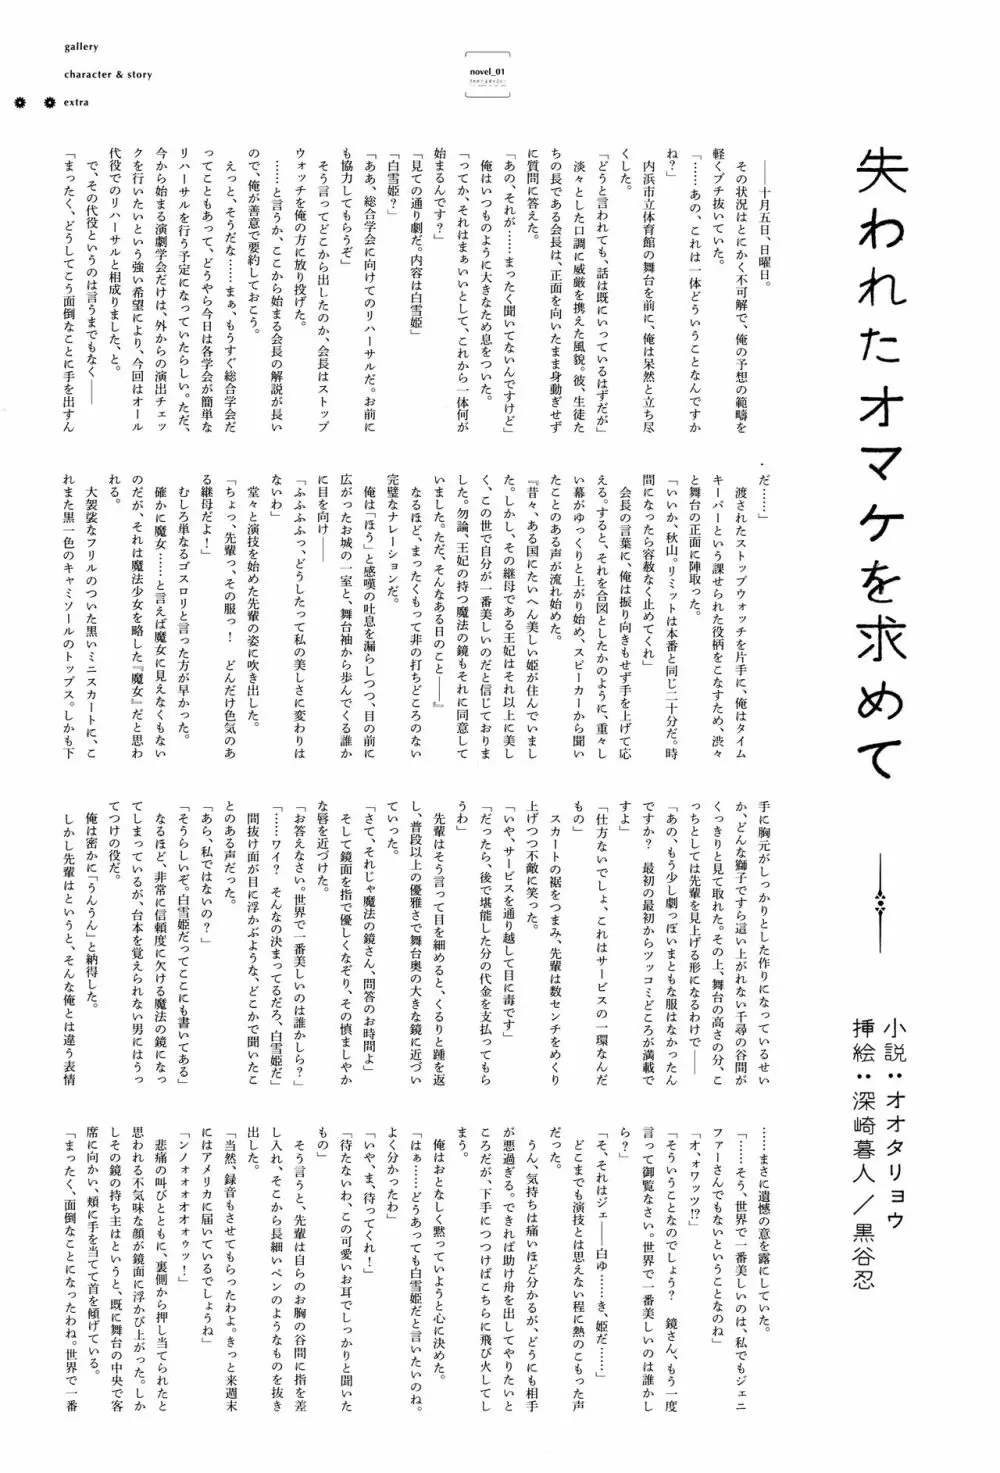 gallery
character & story
extra
novel_01
失われたオマケを求めて
小説：オオタリョウ
挿絵：深崎暮人／黒谷忍
――十月五日、日曜日。
その状況はとにかく不可解で、俺の予想の範疇を
軽くブチ抜いていた。
「……あの、これは一体どういうことなんですか
ね？」
内浜市立体育館の舞台を前に、俺は呆然と立ち尽
くした。
「どうと言われても、話は既にいっているはずだが」
淡々とした口調に威厳を携えた風貌。彼、生徒た
ちの長である会長は、正面を向いたまま身動ぎせず
に質問に答えた。
「あの、それが……まったく聞いてないんですけど」
俺はいつものように大きなため息をついた。
「ってか、それはまぁいいとして、これから一体何が
始まるんです？」
「見ての通り劇だ。内容は白雪姫」
「白雪姫？」
「ああ、総合学会に向けてのリハーサルだ。お前に
も協力してもらうぞ」
そう言ってどこから出したのか、会長はストップ
ウォッチを俺の方に放り投げた。
……と言うか、ここから始まる会長の解説が長い
ので、俺が善意で要約しておこう。
えっと、そうだな……まぁ、もうすぐ総合学会だ
ってこともあって、どうやら今日は各学会が簡単な
リハーサルを行う予定になっていたらしい。ただ、
今から始まる演劇学会だけは、外からの演出チェッ
クを行いたいという強い希望により、今回はオール
代役でのリハーサルと相成りました、と。
で、その代役というのは言うまでもなく――
「まったく、どうしてこう面倒なことに手を出すん
だ……」
渡されたストップウォッチを片手に、俺はタイム
キーパーという課せられた役柄をこなすため、渋々
と舞台の正面に陣取った。
「いいか、秋山。リミットは本番と同じ二十分だ。時
間になったら容赦なく止めてくれ」
会長の言葉に、俺は振り向きもせず手を上げて応
える。すると、それを合図としたかのように、重々し
い幕がゆっくりと上がり始め、スピーカーから聞い
たことのある声が流れ始めた。
『昔々、ある国にたいへん美しい姫が住んでいまし
た。しかし、その継母である王妃はそれ以上に美し
く、この世で自分が一番美しいのだと信じておりま
した。勿論、王妃の持つ魔法の鏡もそれに同意して
いました。ただ、そんなある日のこと――』
なるほど、まったくもって非の打ちどころのない
完璧なナレーションだ。
俺は「ほう」と感嘆の吐息を漏らしつつ、目の前に
広がったお城の一室と、舞台袖から歩んでくる誰か
に目を向け――
「ふふふふっ、どうしたって私の美しさに変わりは
ないわ」
堂々と演技を始めた先輩の姿に吹き出した。
「ちょっ、先輩っ、その服っ！　どんだけ色気のあ
る継母だよ！」
むしろ単なるゴスロリと言った方が早かった。
確かに魔女……と言えば魔女に見えなくもない
のだが、それは魔法少女を略した『魔女』だと思わ
れる。
大袈裟なフリルのついた黒いミニスカートに、こ
れまた黒一色のキャミソールのトップス。しかも下
手に胸元がしっかりとした作りになっているせい
か、どんな獅子ですら這い上がれない千尋の谷間が
くっきりと見て取れた。その上、舞台の高さの分、こ
っちとしては先輩を見上げる形になるわけで――
「あの、もう少し劇っぽいまともな服はなかったん
ですか？　最初の最初からツッコミどころが満載で
すよ」
「仕方ないでしょ、これはサービスの一環なんだ
もの」
スカートの裾をつまみ、先輩は数センチをめくり
上げつつ不敵に笑った。
「いや、サービスを通り越して目に毒です」
「だったら、後で堪能した分の代金を支払ってもら
うわ」
先輩はそう言って目を細めると、くるりと踵を返
し、普段以上の優雅さで舞台奥の大きな鏡に近づい
ていった。
「さて、それじゃ魔法の鏡さん、問答のお時間よ」
そして鏡面を指で優しくなぞり、その慎ましやか
な唇を近づけた。
「お答えなさい。世界で一番美しいのは誰かしら？」
「……ワイ？　そんなの決まってるだろ、白雪姫だ」
間抜け面が目に浮かぶような、どこかで聞いたこ
とのある声だった。
「あら、私ではないの？」
「そうらしいぞ。白雪姫だってここにも書いてある」
なるほど、非常に信頼度に欠ける魔法の鏡になっ
てしまっているが、台本を覚えられない男にはうっ
てつけの役だ。
俺は密かに「うんうん」と納得した。
しかし先輩はというと、そんな俺とは違う表情
……まさに遺憾の意を露にしていた。
「……そう、世界で一番美しいのは、私でもジェニ
ファーさんでもないということなのね」
「オ、オワッツ!?」
「そういうことなのでしょう？　鏡さん、もう一度
言って御覧なさい。世界で一番美しいのは誰かし
ら？」
「そ、それはジェ――白ゆ……き、姫だ……」
どこまでも演技とは思えない程に熱のこもった声
だった。
うん、気持ちは痛いほど分かるが、どうにも相手
が悪過ぎる。できれば助け舟を出してやりたいと
ころだが、下手につつけばこちらに飛び火してし
まう。
俺はおとなしく黙っていようと心に決めた。
「はぁ……どうあっても白雪姫だと言いたいのね。
よく分かったわ」
「いや、ま、待ってくれ！」
「待たないわ、この可愛いお耳でしっかりと聞いた
もの」
そう言うと、先輩は自らのお胸の谷間に指を差
し入れ、そこから長細いペンのようなものを抜き
出した。
「当然、録音もさせてもらったわよ。きっと来週末
にはアメリカに届いているでしょうね」
「ンノォォオオオゥッ！」
悲痛の叫びとともに、裏側から押し当てられたと
思われる不気味な顔が鏡面に浮かび上がった。しか
しその鏡の持ち主はというと、既に舞台の中央で客
席に向かい、頬に手を当てて首を傾げている。
「まったく、面倒なことになったわね。世界で一番